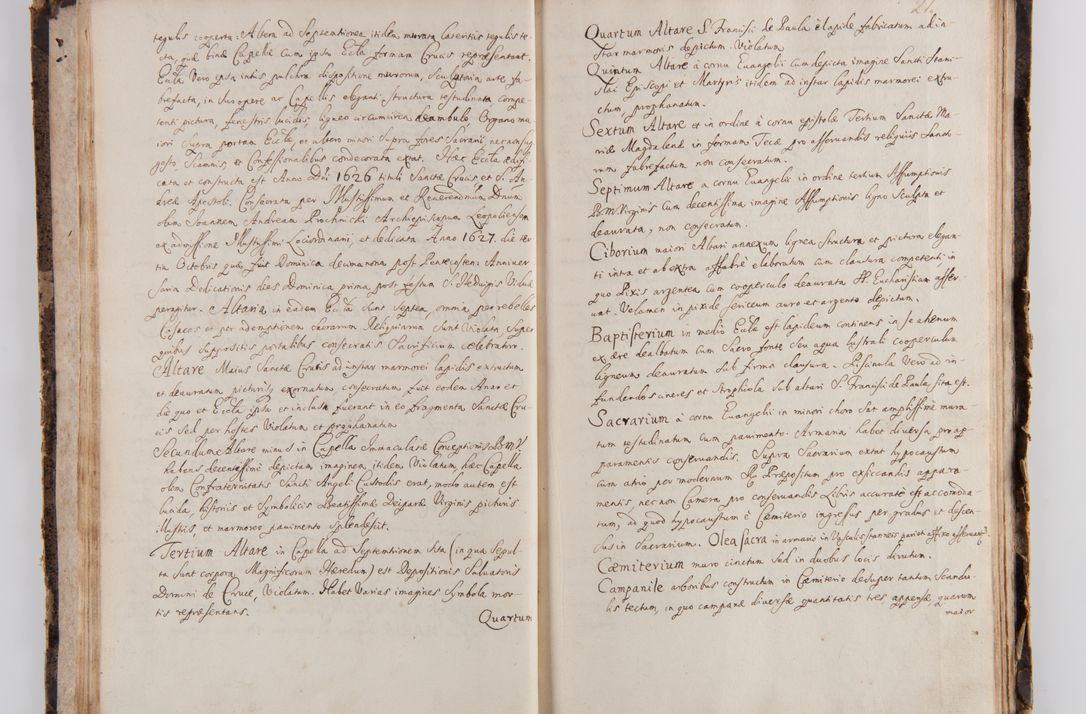 tegulis cooperta. Altera ad Septemtrionem itidem murata lateritiis tegulis te-
cta, quæ binæ Capellæ cum ipsa Eccla formam Crucis repræsentant.
Eccla Vero ipsa intus pulchra dispositione murorum, Sculptoria arte fa-
brefacta, in suo opere ac Capellis eleganti structura testudinata compe-
tenti pictura, fenestris lucidis, ligneo circumcirca deambulo, Organo ma-
iori Supra portam Ecclæ, et altero minori Supra fores Sacrarii, necnon sug-
gesto, Scamnis, et Confessionalibus condecorata extat. Hæc Eccla ædifi-
cata et constructa est Anno Dni 1626 tituli Sanctæ Crucis et S. An-
dreæ Apostoli. Consecrata per Illustrissimum et Reverendissimum Dnum
olim Joannem Andream Prochnicki Archiepiscopum Leopoliensem
ex admissione Illustrissimi Lociordinarii, et dedicata Anno 1627. die ter-
tia Octobris quæ fuit Dominica decimanona post Pentecosten: Anniver-
saria Dedicationis dies Dominica prima post festum S. Hedvigis Viduæ
peragitur. Altaria in eadem Eccla sunt Septem, omnia per rebelles
Cosacos et per ademptionem sacrarum Reliquiarum sunt Violata, super
quibus suppositis portatilibus consecratis Sacrificium celebratur.
Altare Maius Sanctæ Crucis ad instar marmorei lapidis extructum
et deauratum picturis exornatum consecratum fuit eodem Anno et
die quo et Eccla ipsa et inclusa fuerant in eo fragmenta Sanctæ Cru-
cis Sed per hostes Violatum et prophanatum
Secundum Altare minus in Capella Immaculatæ Conceptionis B.M.V.
habens decentissime depictam imaginem, itidem Violatum, hæc Capella
olim Confraternitatis Sancti Angeli Custodis erat, modo autem est
lucida, historiis et Symbolicis Beatissimæ Deiparæ Virginis picturis
illustris, et marmoreo pavimento splendescit.
Tertium Altare in Capella ad Septemtrionem sita (in qua Sepul-
ta sunt corpora Magnificorum Hæredum) est Depositionis Salvatoris
Domini de Cruce, Violatum. Habet Varias imagines Symbola mor-
tis repræsentans.
Quartum
27
Quartum Altare S. Francisci de Paula e lapide fabricatum ad in-
star marmoris depictum. Violatum
Quintum Altare a cornu Euangelii cum depicta imagine Sancti Stani-
slai Episcopi et Martyris itidem ad instar lapidis marmorei extru-
ctum, prophanatum.
Sextum Altare et in ordine a cornu epistolæ Tertium Sanctæ Ma-
riæ Magdalenæ in formam Tecæ pro asservandis reliquiis Sancto-
rum fabrefactum non consecratum.
Septimum Altare a cornu Euangelii in ordine tertium Assumptionis
B.M. Virginis cum decentissima imagine Assumptionis ligno Sculpta et
deaurata, non consecratum.
Ciborium maiori Altari annexum lignea structura et pictura elegan-
ti intra et ab extra affabre elaboratum cum clausura competenti in
quo Pixis argentea cum cooperculo deaurata SS. Eucharistiam asser-
vat. Velamen in pixide sericeum auro et argento depictum.
Baptisterium in medio Ecclæ est lapideum continens in se ahenum
ex ære dealbatum cum Sacro fonte seu aqua lustrali cooperculum
ligneum deauratum sub firma clausura. Piscinula Vero ad in-
fundendos cineres et Strophiola sub altari S. Francisci de Paula sita est.
Sacrarium a cornu Euangelii in minori choro sat amplissime mura-
tum testudinatum cum pavimento. Armaria habet diversa pro ap-
paramentis conservandis. Supra Sacrarium extat hypocaustum
cum atrio per modernum Præpositum pro exsiccandis appara-
mentis, nec non Camera pro conservandis Libris accurate est accomoda-
tum, ad quod hypocaustum e Cæmiterio ingressus per gradus et descen-
sus in Sacrarium. Olea sacra in armario in Vasculis stanneis parieti affixo asservantur
Cæmiterium muro cinctum sed in duobus locis dirutum.
Campanile arboribus constructum in Cæmiterio desuper tantum Scandu-
lis tectum, in quo campanæ diversæ quantitatis tres appensæ, quarum
maior